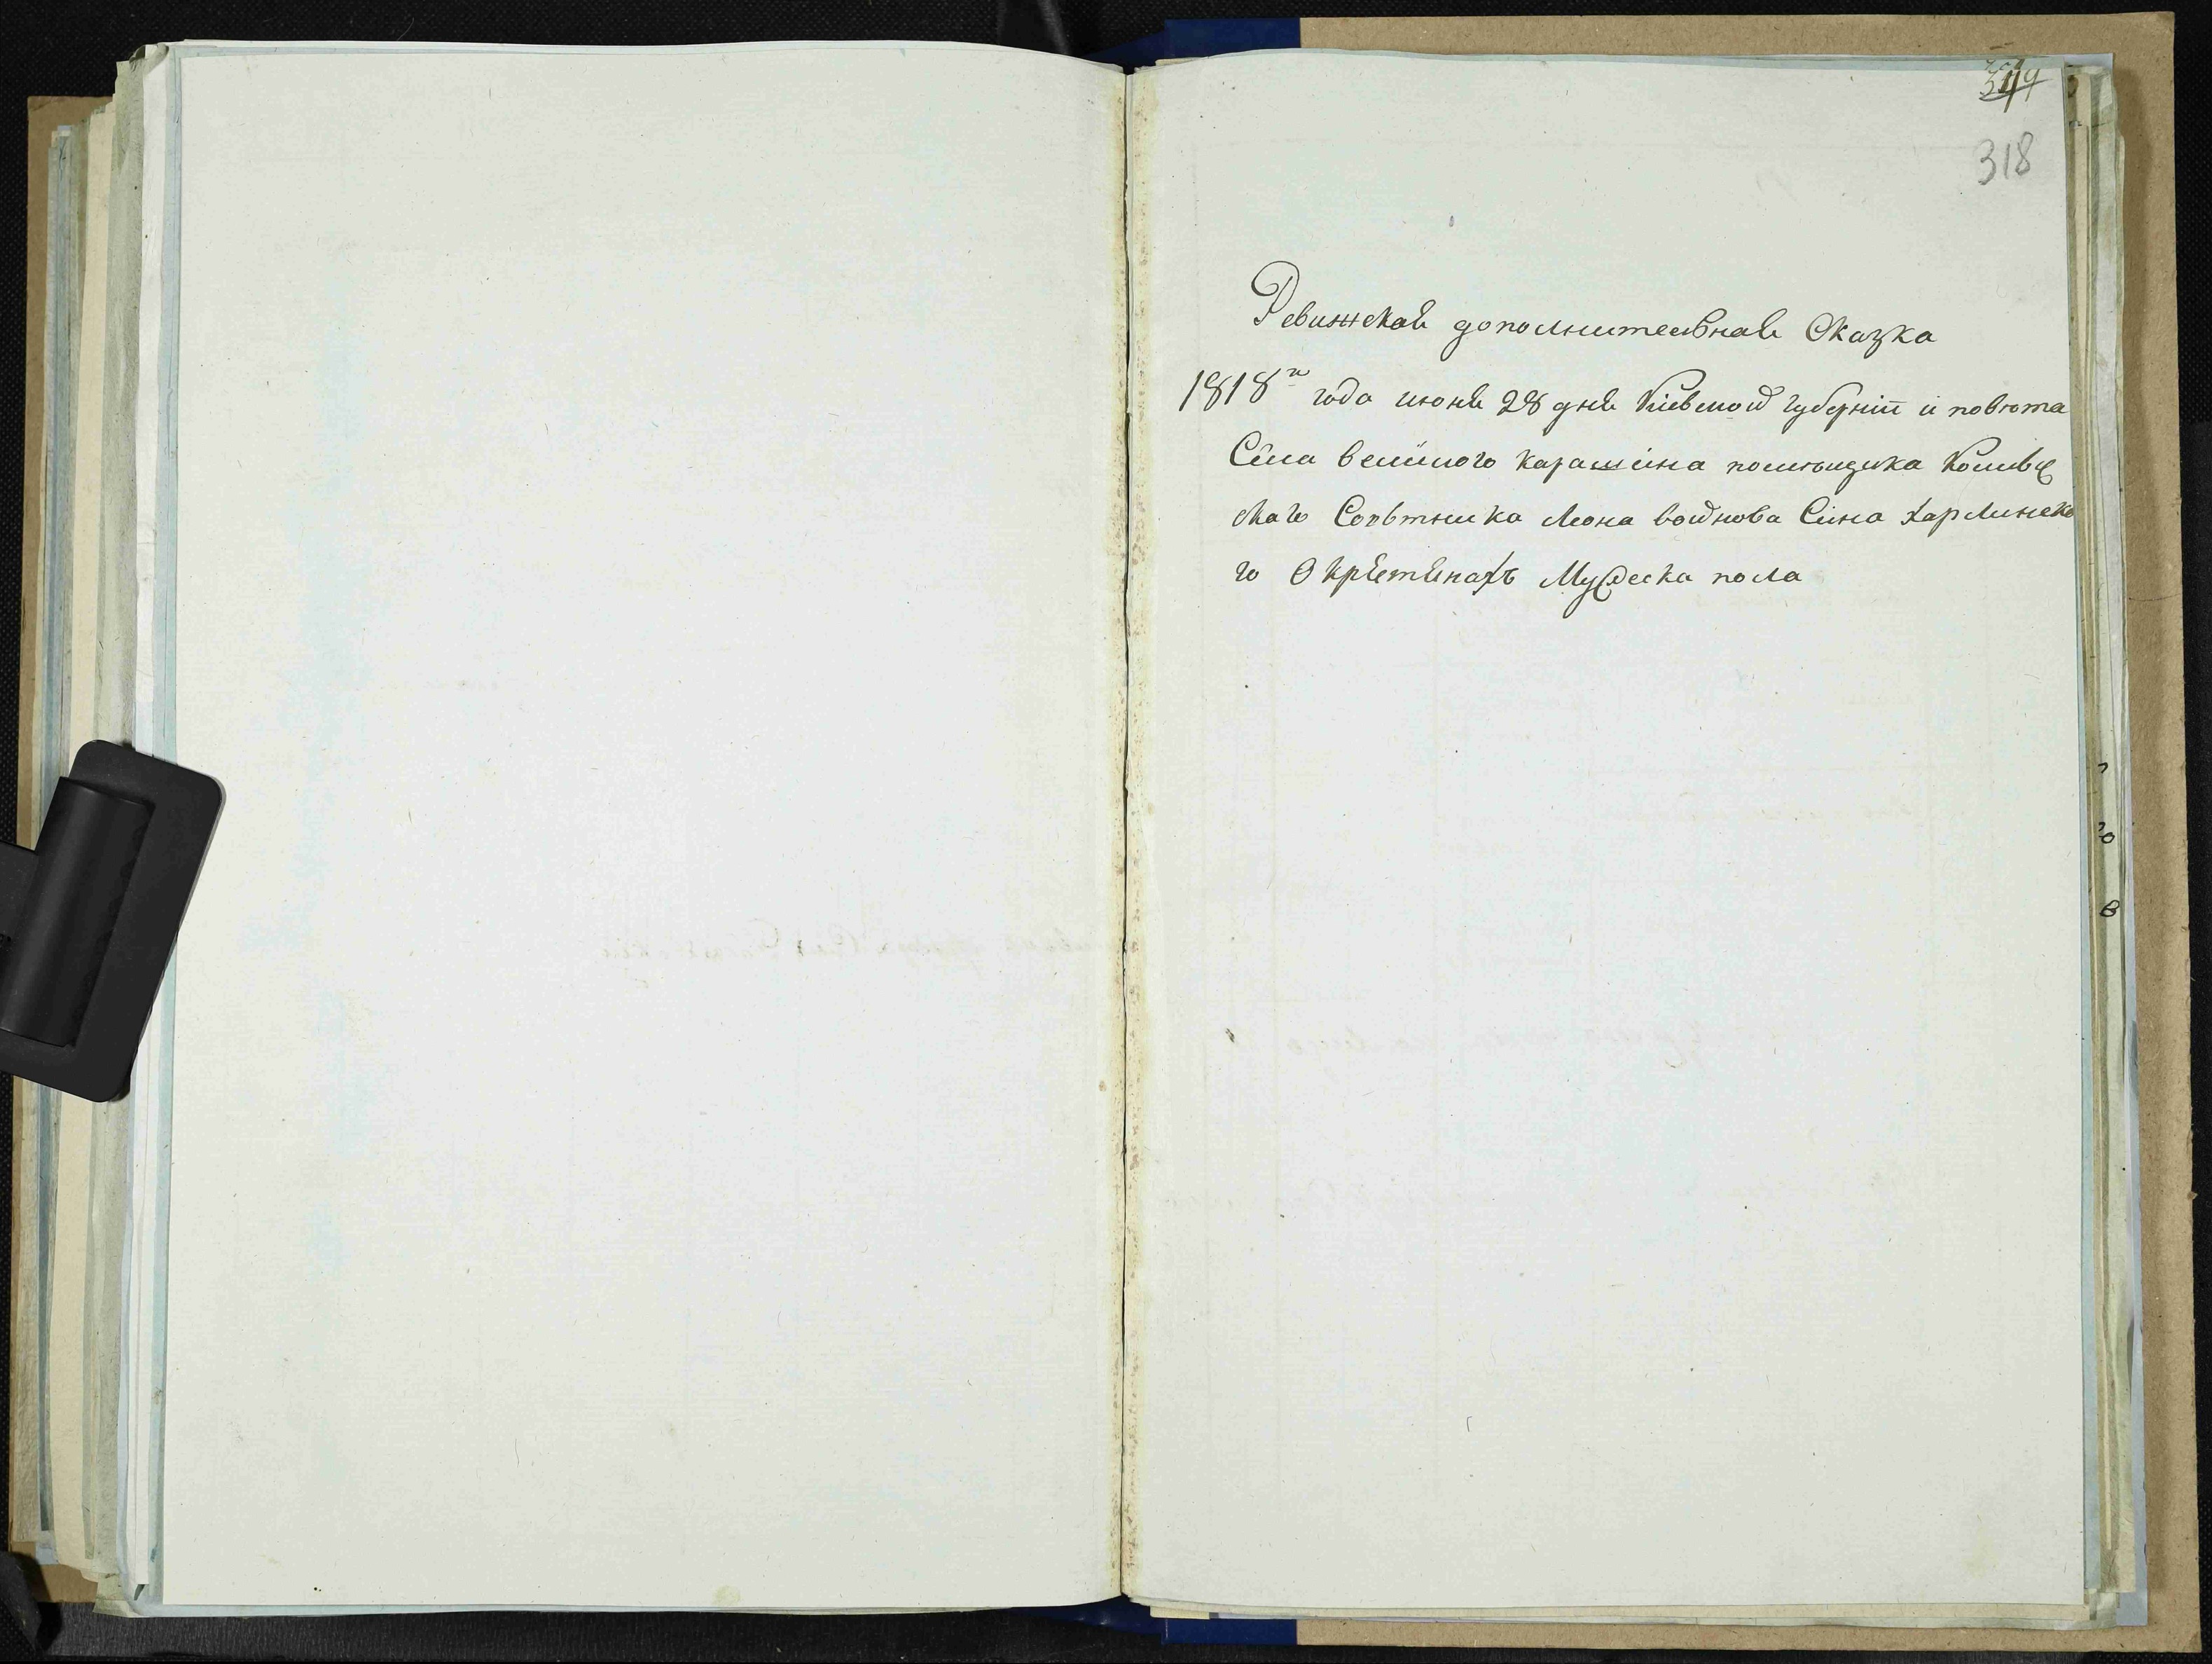 318
Ревижская дополнительная Сказка
1818го года июня 28 дня Киевской губернии и повѣта
Села великого карашина помѣщика Колежс
скаго Совѣтника Леона войнова Сина Харлинско
го О крѣстянахъ Мужеска пола